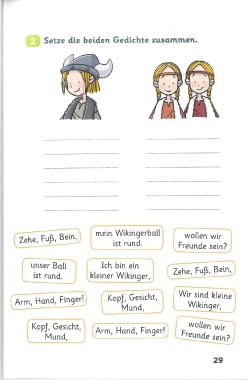 2 Setze die beiden Gedichte zusammen.
Zehe, Fuß, Bein,
mein Wikingerball
ist rund.
wollen wir
Freunde sein?
unser Ball
ist rund.
Ich bin ein
kleiner Wikinger,
Zehe, Fuß, Bein,
Arm, Hand, Finger!
Kopf, Gesicht,
Mund,
Wir sind kleine
Wikinger,
Kopf, Gesicht,
Mund,
Arm, Hand, Finger!
wollen wir
Freunde sein?
29